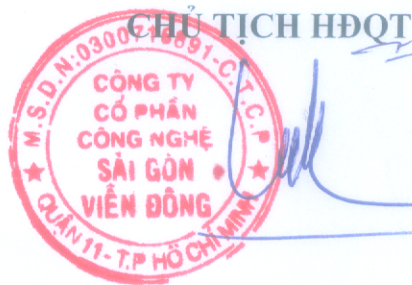 CHỦ TỊCH HĐQT
CÔNG TY
CỔ PHẦN
CÔNG NGHỆ
SÀI GÒN
VIỄN ĐÔNG
QUẬN 11 - T.P HỒ CHÍ MINH